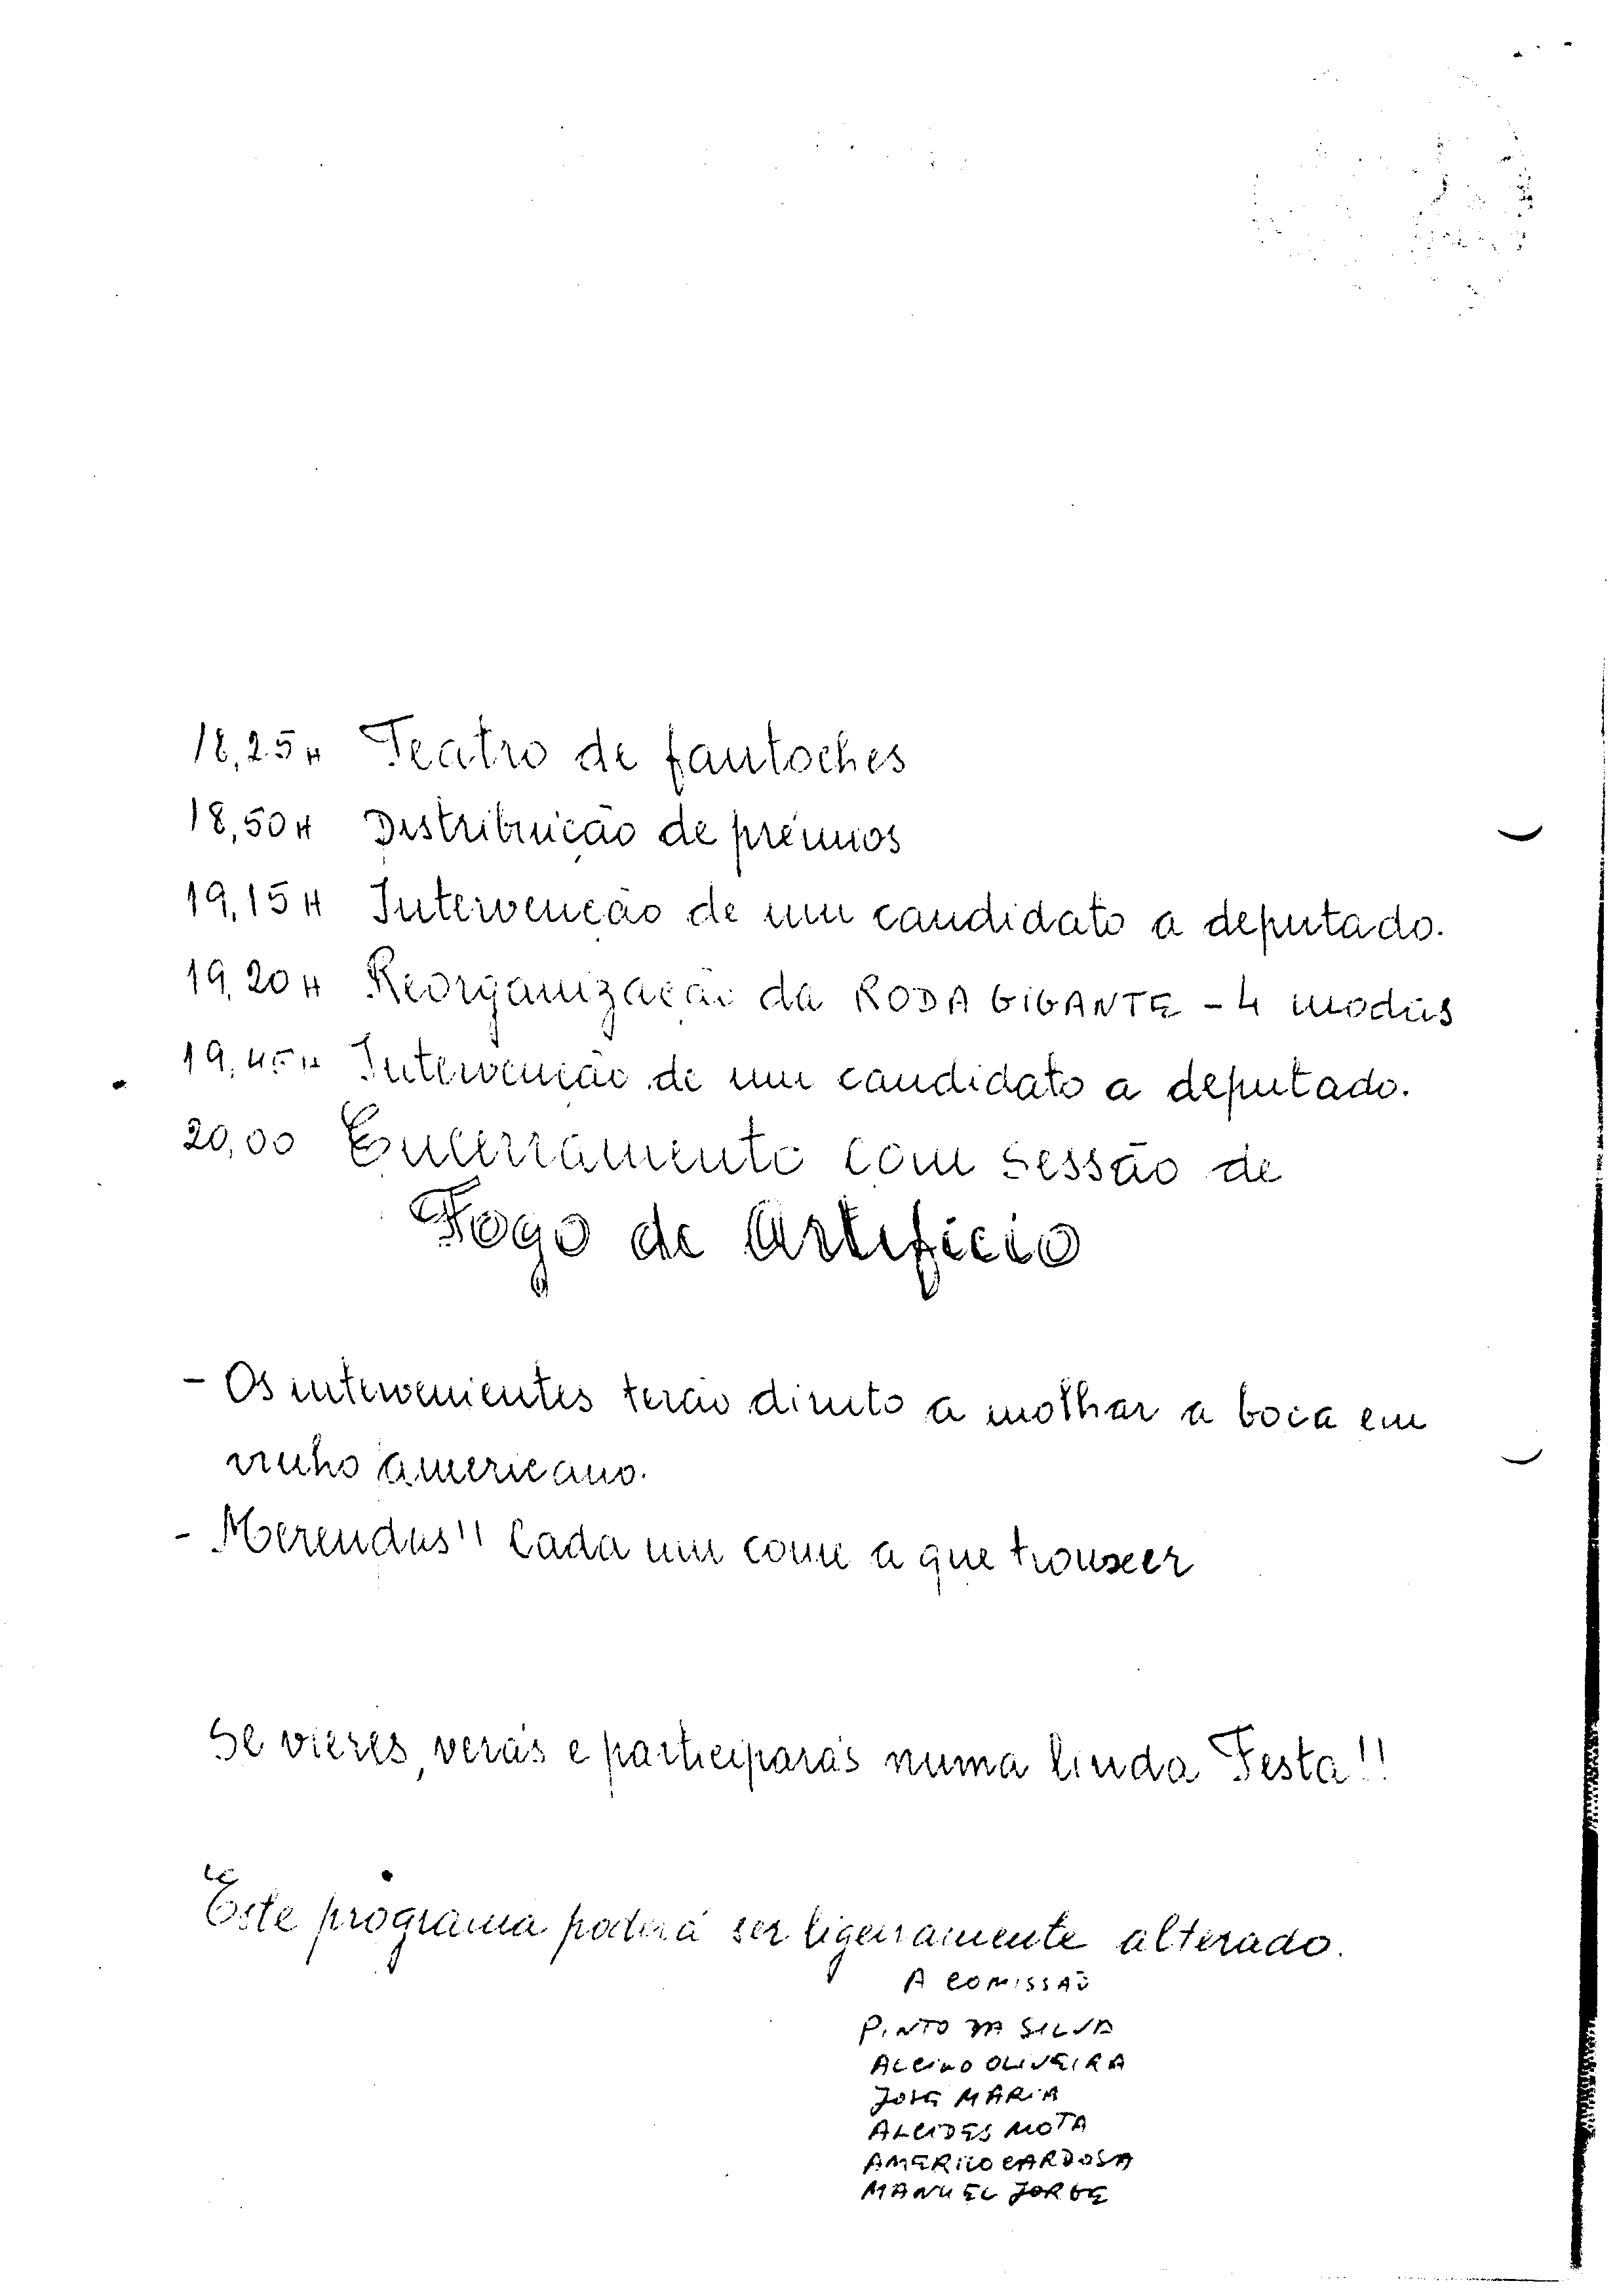 18,25H Teatro de fantoches
18,50H Distribuição de prémios
19,15H Intervenção de um candidato a deputado.
19,20H Reorganização da RODA GIGANTE - 4 modas
19,45H Intervenção de um candidato a deputado.
20,00 Encerramento com sessão de
Fogo de Artifício
- Os intervenientes terão direito a molhar a boca em
vinho americano.
- Merendas!! Cada um come a que trouxer
Se vieres, verás e participarás numa linda Festa!!
Este programa poderá ser ligeiramente alterado.
A COMISSÃO
PINTO DA SILVA
ALCINO OLIVEIRA
JOSÉ MARIA
ALCIDES MOTA
AMERICO CARDOSA
MANUEL JORGE